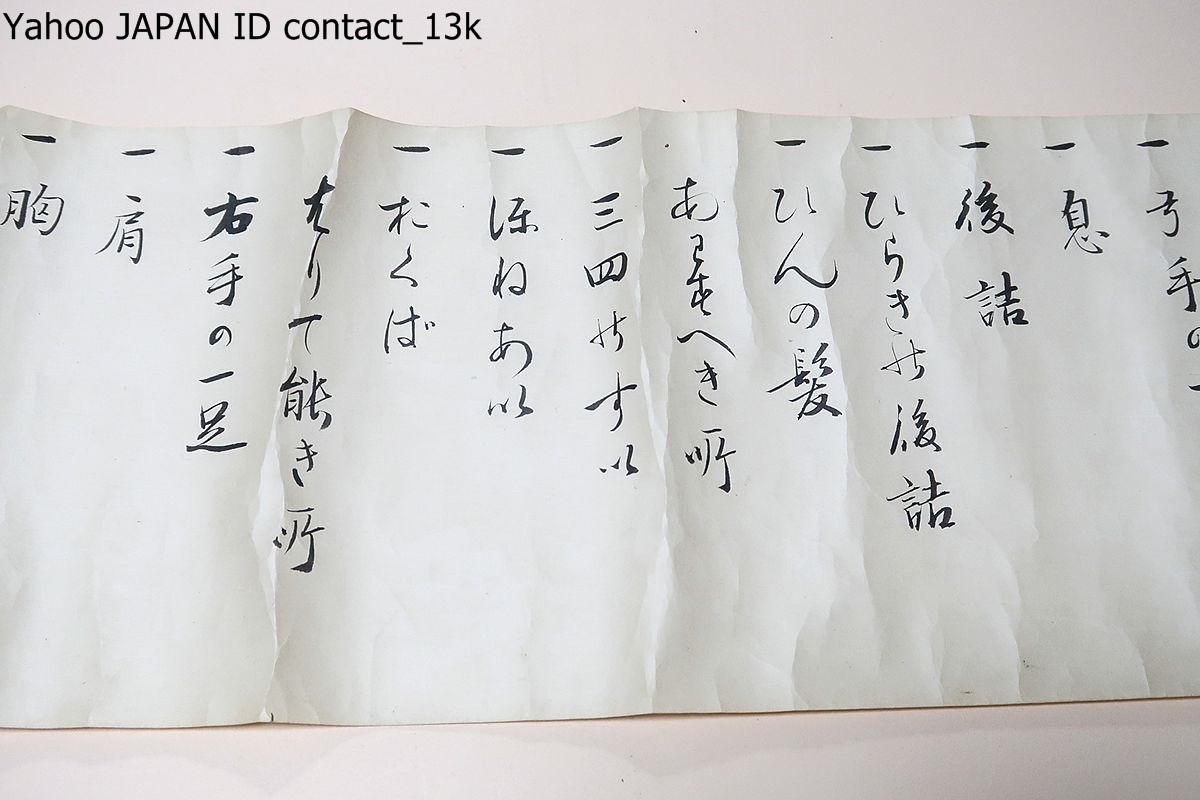 Yahoo JAPAN ID contact_13k
一 弓手の一
一 息
一 後詰
一 ひらきの後詰
一 ひんの髪
あわすへき所
一 三四のすい
一 ほねあい
一 おくば
はりて能き所
一 右手の一足
一 肩
一 胸